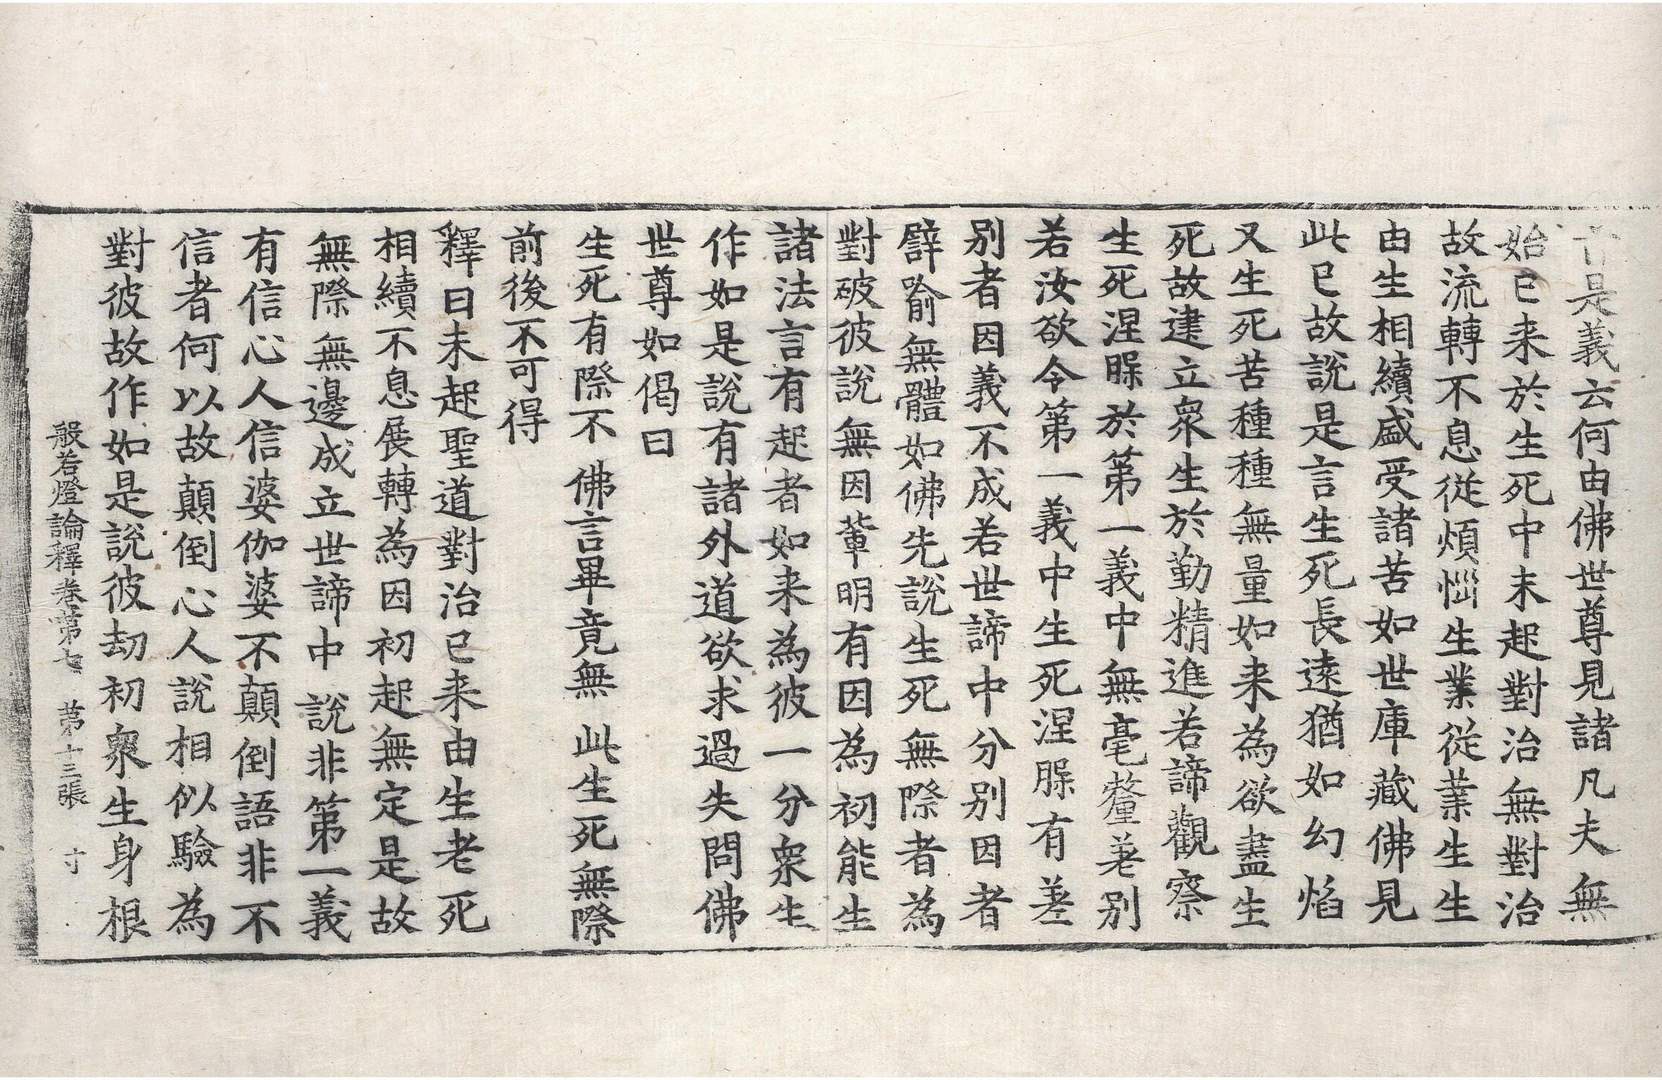 是義云何由佛世尊見諸凡夫無
始已来於生死中未起對治無對治
故流轉不息從煩惱生業從業生生
由生相續盛受諸苦如世庫藏佛見
此已故說是言生死長遠猶如幻焰
又生死苦種種無量如来為欲盡生
死故建立衆生於勤精進若諦觀察
生死涅槃於第一義中無毫釐差別
若汝欲令第一義中生死涅槃有差
別者因義不成若世諦中分別因者
譬喻無體如佛先說生死無際者為
對破彼說無因軰明有因為初能生
諸法言有起者如来為彼一分衆生
作如是說有諸外道欲求過失問佛
世尊如偈曰
生死有際不 佛言畢竟無 此生死無際
前後不可得
釋曰未起聖道對治已来由生老死
相續不息展轉為因初起無定是故
無際無邊成立世諦中說非第一義
有信心人信婆伽婆不顛倒語非不
信者何以故顛倒心人說相似驗為
對彼故作如是說彼劫初衆生身根
般若燈論釋卷第七 第十三張 寸